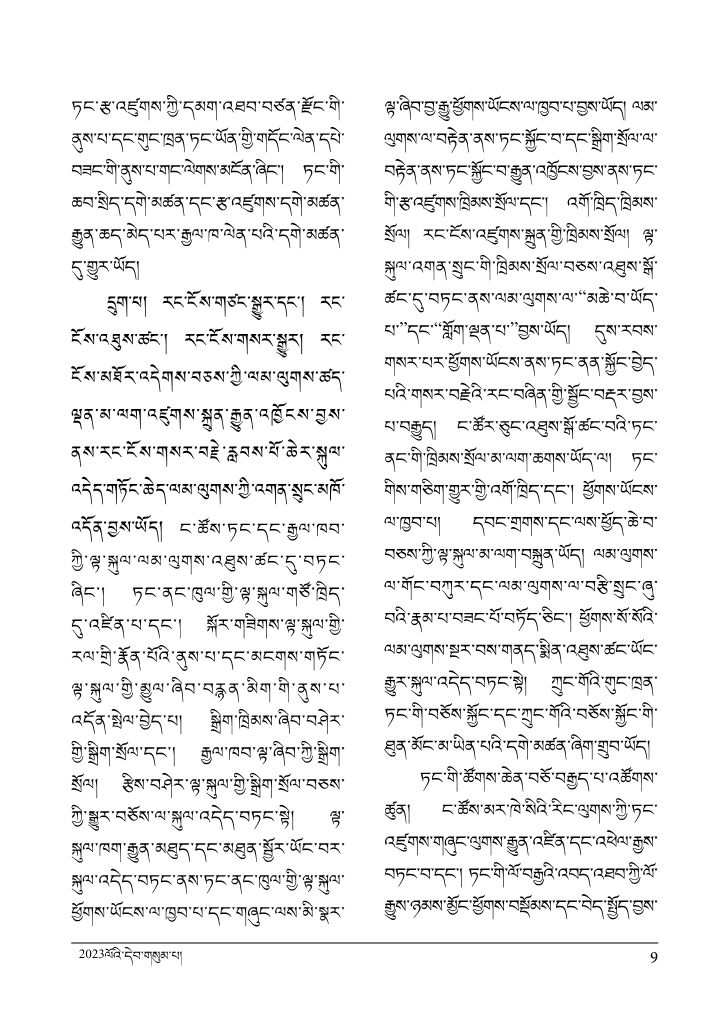 ཏང་རྩ་འཛུགས་ཀྱི་དམག་འཐབ་བཙན་རྫོང་གི་
ནུས་པ་དང་གུང་ཁྲན་ཏང་ཡོན་གྱི་གདོང་ལེན་དཔེ་
བཟང་གི་ནུས་པ་གང་ལེགས་མངོན་ཞིང་། ཏང་གི་
ཆབ་སྲིད་དགེ་མཚན་དང་རྩ་འཛུགས་དགེ་མཚན་
རྒྱུན་ཆད་མེད་པར་རྒྱལ་ཁ་ལེན་པའི་དགེ་མཚན་
དུ་གྱུར་ཡོད།
དྲུག་པ། རང་ངོས་གཙང་སྒྱུར་དང་། རང་
ངོས་འཐུས་ཚང་། རང་ངོས་གསར་སྒྱུར། རང་
ངོས་མཐོར་འདེགས་བཅས་ཀྱི་ལམ་ལུགས་ཚད་
ལྡན་མ་ལག་འཛུགས་སྐྲུན་རྒྱུན་འཁྱོངས་བྱས་
ནས་རང་ངོས་གསར་བརྗེ་རླབས་པོ་ཆེར་སྐུལ་
འདེད་གཏོང་ཆེད་ལམ་ལུགས་ཀྱི་འགན་སྲུང་མཁོ་
འདོན་བྱས་ཡོད། ང་ཚོས་ཏང་དང་རྒྱལ་ཁབ་
ཀྱི་ལྟ་སྐུལ་ལམ་ལུགས་འཐུས་ཚང་དུ་བཏང་
ཞིང་། ཏང་ནང་ཁུལ་གྱི་ལྟ་སྐུལ་གཙོ་ཁྲིད་
དུ་འཛིན་པ་དང་། སྐོར་གཟིགས་ལྟ་སྐུལ་གྱི་
རལ་གྲི་རྣོན་པོའི་ནུས་པ་དང་མངགས་གཏོང་
ལྟ་སྐུལ་གྱི་མྱུལ་ཞིབ་བརྙན་མིག་གི་ནུས་པ་
འདོན་སྤེལ་བྱེད་པ། སྒྲིག་ཁྲིམས་ཞིབ་བཤེར་
གྱི་སྒྲིག་སྲོལ་དང་། རྒྱལ་ཁབ་ལྟ་ཞིབ་ཀྱི་སྒྲིག་
སྲོལ། རྩིས་བཤེར་ལྟ་སྐུལ་གྱི་སྒྲིག་སྲོལ་བཅས་
ཀྱི་སྒྱུར་བཅོས་ལ་སྐུལ་འདེད་བཏང་སྟེ། ལྟ་
སྐུལ་ཁག་རྒྱུན་མཐུད་དང་མཐུན་སྦྱོར་ཡོང་བར་
སྐུལ་འདེད་བཏང་ནས་ཏང་ནང་ཁུལ་གྱི་ལྟ་སྐུལ་
ཕྱོགས་ཡོངས་ལ་ཁྱབ་པ་དང་གཞུང་ལས་མི་སྣར་
ལྟ་ཞིབ་བྱ་རྒྱུ་ཕྱོགས་ཡོངས་ལ་ཁྱབ་པ་བྱས་ཡོད། ལམ་
ལུགས་ལ་བརྟེན་ནས་ཏང་སྐྱོང་བ་དང་སྒྲིག་སྲོལ་ལ་
བརྟེན་ནས་ཏང་སྐྱོང་བ་རྒྱུན་འཁྱོངས་བྱས་ནས་ཏང་
གི་རྩ་འཛུགས་ཁྲིམས་སྲོལ་དང་། འགོ་ཁྲིད་ཁྲིམས་
སྲོལ། རང་ངོས་འཛུགས་སྐྲུན་གྱི་ཁྲིམས་སྲོལ། ལྟ་
སྐུལ་འགན་སྲུང་གི་ཁྲིམས་སྲོལ་བཅས་འཐུས་སྒོ་
ཚང་དུ་བཏང་ནས་ལམ་ལུགས་ལ་“མཆེ་བ་ཡོད་
པ་”དང་“གློག་ལྡན་པ་”བྱས་ཡོད། དུས་རབས་
གསར་པར་ཕྱོགས་ཡོངས་ནས་ཏང་ནན་སྐྱོང་བྱེད་
པའི་གསར་བརྗེའི་རང་བཞིན་གྱི་སྦྱོང་བརྡར་བྱས་
པ་བརྒྱུད། ང་ཚོར་ཅུང་འཐུས་སྒོ་ཚང་བའི་ཏང་
ནང་གི་ཁྲིམས་སྲོལ་མ་ལག་ཆགས་ཡོད་ལ། ཏང་
གིས་གཅིག་གྱུར་གྱི་འགོ་ཁྲིད་དང་། ཕྱོགས་ཡོངས་
ལ་ཁྱབ་པ། དབང་གྲགས་དང་ལས་ཕྱོད་ཆེ་བ་
བཅས་ཀྱི་ལྟ་སྐུལ་མ་ལག་བསྐྲུན་ཡོད། ལམ་ལུགས་
ལ་གོང་བཀུར་དང་ལམ་ལུགས་ལ་བརྩི་སྲུང་ཞུ་
བའི་རྣམ་པ་བཟང་པོ་བཏོད་ཅིང་། ཕྱོགས་སོ་སོའི་
ལམ་ལུགས་སྔར་བས་གནད་སྨིན་འཐུས་ཚང་ཡོང་
རྒྱུར་སྐུལ་འདེད་བཏང་སྟེ། ཀྲུང་གོའི་གུང་ཁྲན་
ཏང་གི་བཅོས་སྐྱོང་དང་ཀྲུང་གོའི་བཅོས་སྐྱོང་གི་
ཐུན་མོང་མ་ཡིན་པའི་དགེ་མཚན་ཞིག་གྲུབ་ཡོད།
ཏང་གི་ཚོགས་ཆེན་བཅོ་བརྒྱད་པ་འཚོགས་
ཚུན། ང་ཚོས་མར་ཁེ་སིའི་རིང་ལུགས་ཀྱི་ཏང་
འཛུགས་གཞུང་ལུགས་རྒྱུན་འཛིན་དང་འཕེལ་རྒྱས་
བཏང་བ་དང་། ཏང་གི་ལོ་བརྒྱའི་འབད་འཐབ་ཀྱི་ལོ་
རྒྱུས་ཉམས་མྱོང་ཕྱོགས་བསྡོམས་དང་བེད་སྤྱོད་བྱས་
2023ལོའི་དེབ་གསུམ་པ།
9